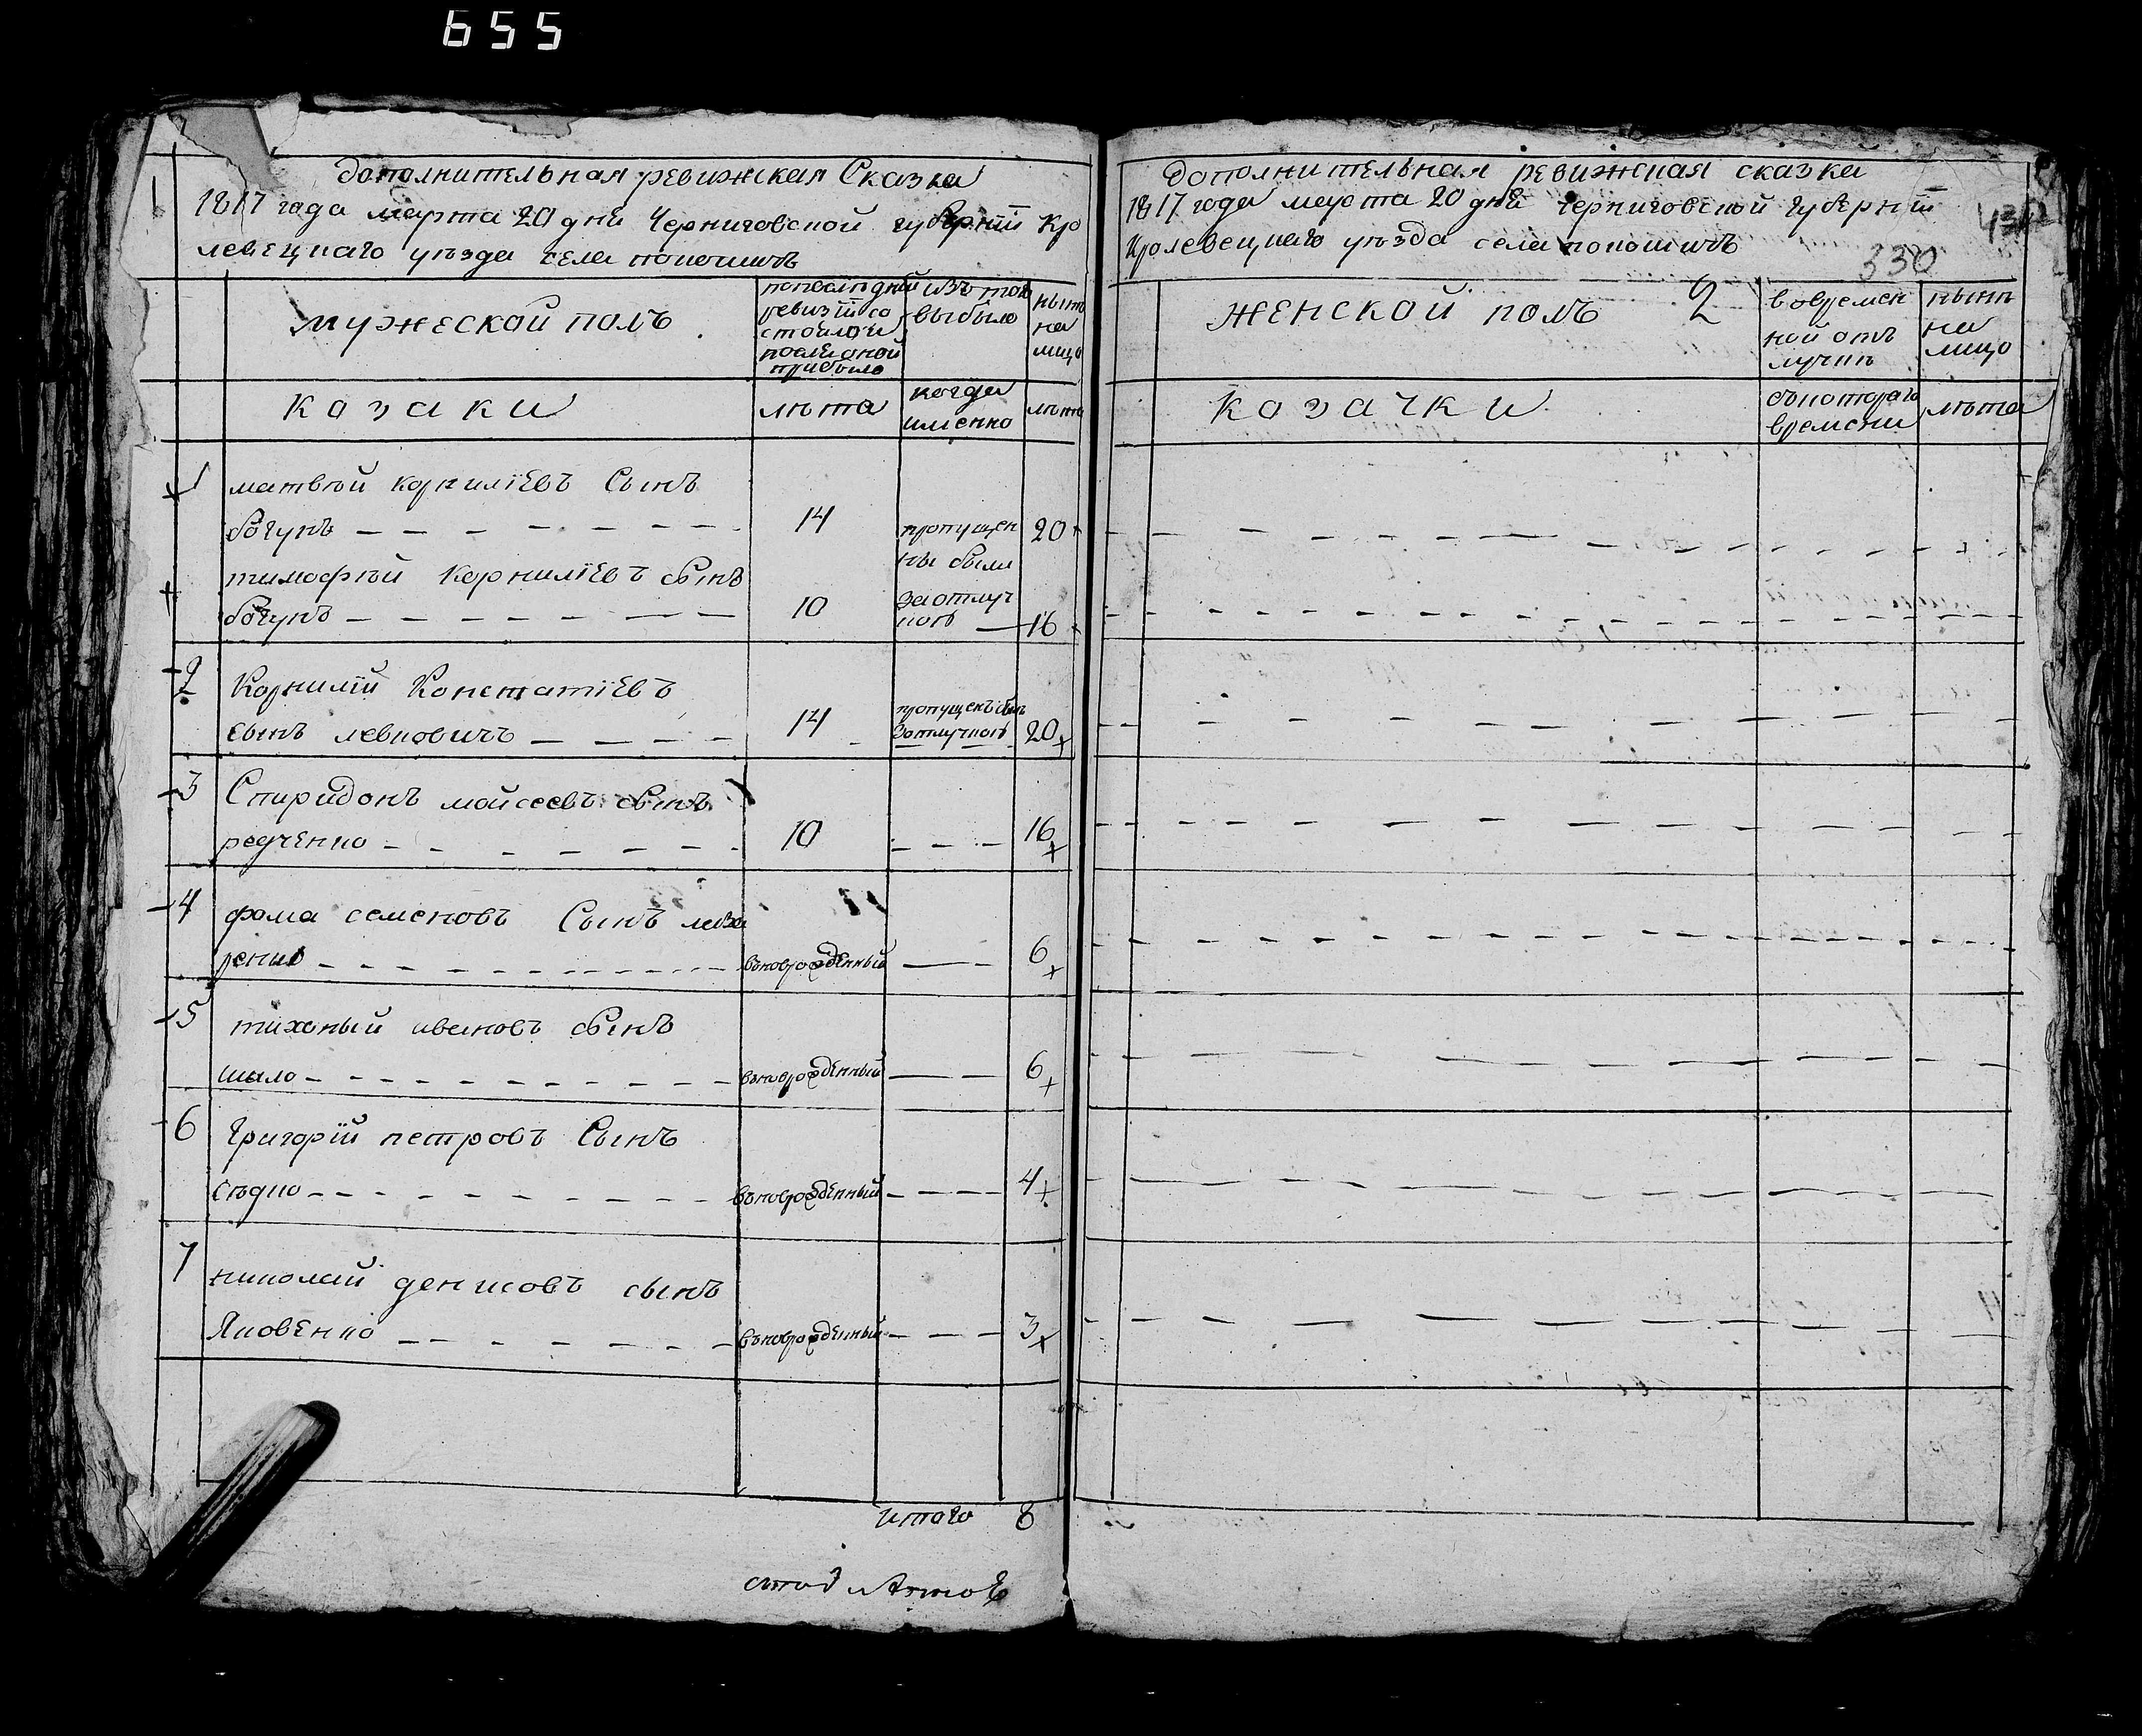 655
дополнительная ревижская Сказка
1817 года марта 20 дня Черниговской губернїи Кро
левецкаго уѣзда села поношицъ
мужеской полъ
попослѣдней
ревизїи со
стояло и
послѣ оной
прибыло
изъ того
выбыло
нынѣ
на
лицо
козаки
лѣта
когда
именно
лѣта
1
матвѣй корнилїевъ Сынъ
богунъ
14
пропущен
ны были
20
тимофѣй Корнилїевъ сынъ
богунъ
10
за отлуч
кою
16
2
Корнилїй
сынъ левковичъ
14
пропущенъ былъ
за отлучкою
20
3
Спиридонъ мойсеевъ сынъ
редченко
10
16
4
фома семеновъ Сынъ лаза
ренко
вновьрожденный
6
5
тихоный ивановъ сынъ
шыло
вновьрожденный
6
6
Григорїй петровъ Сынъ
сѣдко
вновьрожденный
4
7
николай денисовъ сынъ
Яковенко
вновьрожденный
3
Итого 8
дополнительная ревижская сказка
1817 года марта 20 дня черниговской губернїи
кролевецкаго уѣзда села поношицъ
330
женской полъ
2
вовремен
ной отъ
лучкѣ
нынѣ
на
лицо
козачки
съкотораго
времени
лѣта